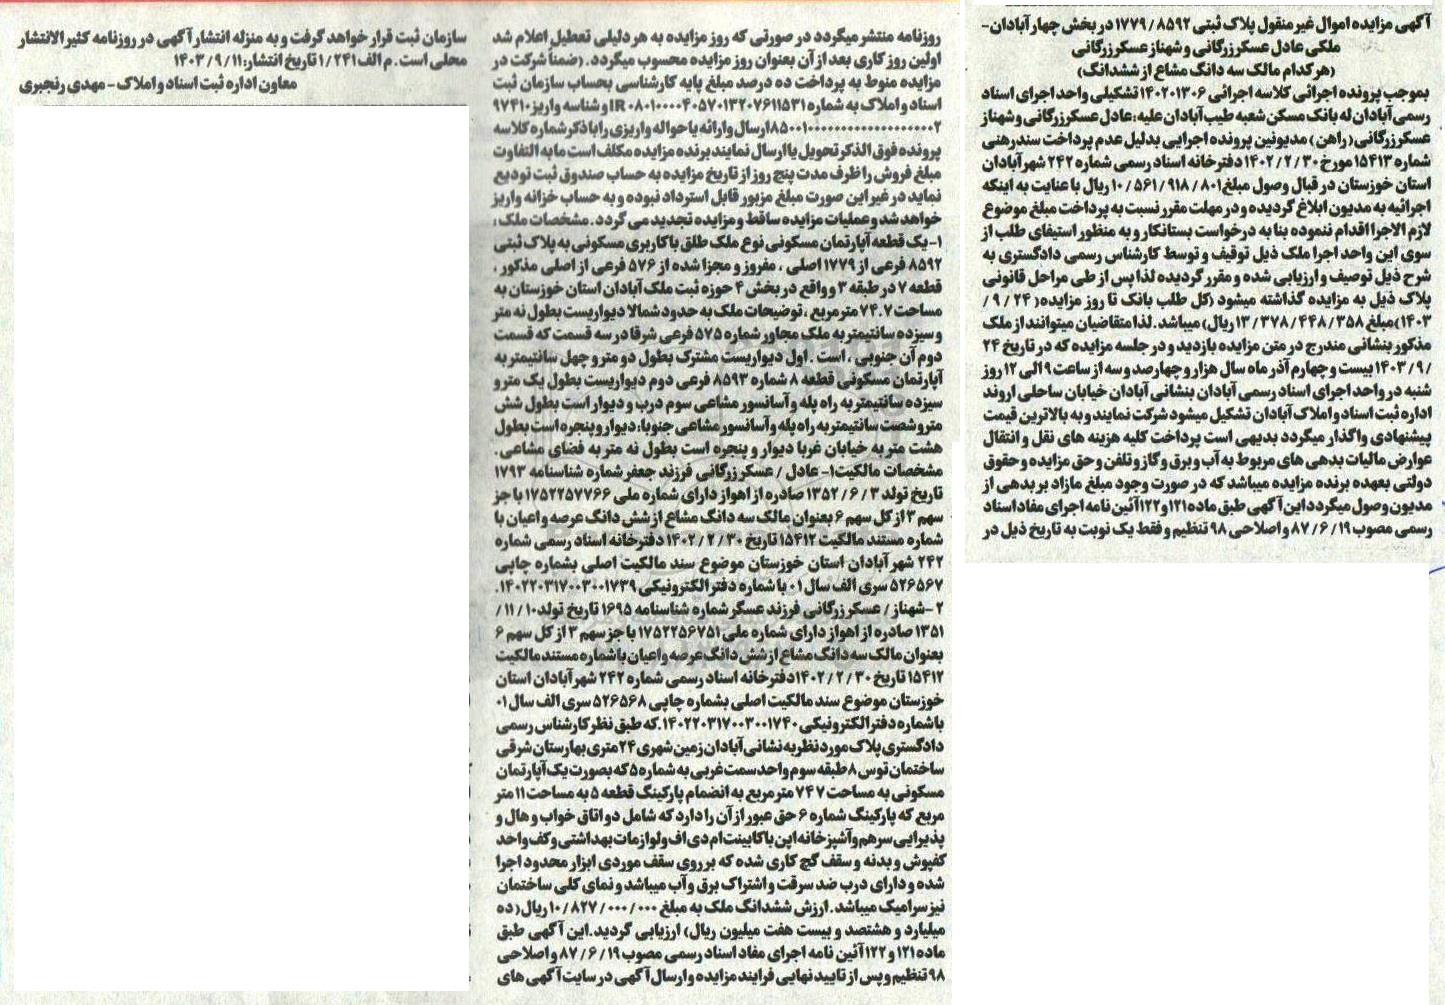 آگهی مزایده اموال غیر منقول پلاک ثبتی ۸۵۹۲ / ۱۷۷۹ در بخش چهار آبادان-
ملکی عادل عسکر زرگانی و شهناز عسکر زرگانی
(هر کدام مالک سه دانگ مشاع از ششدانگ)
بموجب پرونده اجرائی کلاسه اجرائی ۱۴۰۲۰۱۳۰۶ تشکیلی واحد اجرای اسناد
رسمی آبادان له بانک مسکن شعبه طیب آبادان علیه: عادل عسکر زرگانی و شهناز
عسکر زرگانی( راهن ) مدیونین پرونده اجرایی بدلیل عدم پرداخت سند رهنی
شماره ۱۵۴۱۳ مورخ ۳۰ / ۲ / ۱۴۰۲ دفترخانه اسناد رسمی شماره ۲۴۲ شهر آبادان
استان خوزستان در قبال وصول مبلغ ۸۰۱ / ۹۱۸ / ۵۶۱ / ۱۰ ریال با عنایت به اینکه
اجرائیه به مدیون ابلاغ گردیده و در مهلت مقرر نسبت به پرداخت مبلغ موضوع
لازم الاجرا اقدام ننموده بنا به درخواست بستانکار و به منظور استیفای طلب از
سوی این واحد اجرا ملک ذیل توقیف و توسط کارشناس رسمی دادگستری به
شرح ذیل توصیف و ارزیابی شده و مقرر گردیده لذا پس از طی مراحل قانونی
پلاک ذیل به مزایده گذاشته میشود (کل طلب بانک تا روز مزایده( ۲۴ / ۹ /
۱۴۰۳)مبلغ ۳۵۸ / ۴۴۸ / ۳۷۸ / ۱۳ ریال) میباشد. لذا متقاضیان میتوانند از ملک
مذکور بنشانی مندرج در متن مزایده بازدید و در جلسه مزایده که در تاریخ ۲۴
/ ۹ / ۱۴۰۳ بیست و چهارم آذر ماه سال هزار و چهارصد و سه از ساعت ۹ الی ۱۲ روز
شنبه در واحد اجرای اسناد رسمی آبادان بنشانی آبادان خیابان ساحلی اروند
اداره ثبت اسناد و املاک آبادان تشکیل میشود شرکت نمایند و به بالاترین قیمت
پیشنهادی واگذار میگردد بدیهی است پرداخت کلیه هزینه های نقل و انتقال
عوارض مالیات بدهی های مربوط به آب و برق و گاز و تلفن و حق مزایده و حقوق
دولتی بعهده برنده مزایده میباشد که در صورت وجود مبلغ مازاد بر بدهی از
مدیون وصول میگردد این آگهی طبق ماده ۱۲۱ و ۱۲۲ آئین نامه اجرای مفاد اسناد
رسمی مصوب ۱۹ / ۶ / ۸۷ و اصلاحی ۹۸ تنظیم و فقط یک نوبت به تاریخ ذیل در
روزنامه منتشر میگردد در صورتی که روز مزایده به هر دلیلی تعطیل اعلام شد
اولین روز کاری بعد از آن بعنوان روز مزایده محسوب میگردد. (ضمناً شرکت در
مزایده منوط به پرداخت ده درصد مبلغ پایه کارشناسی بحساب سازمان ثبت
اسناد و املاک به شماره IR ۰۸۰۱۰۰۰۰۴۰۵۷۰۱۳۲۰۷۶۱۱۵۳۱ و شناسه واریز ۹۷۴۱۰
ارسال و ارائه یا حواله واریزی را با ذکر شماره کلاسه
پرونده فوق الذکر تحویل یا ارسال نمایند برنده مزایده مکلف است مابه التفاوت
مبلغ فروش را ظرف مدت پنج روز از تاریخ مزایده به حساب صندوق ثبت تودیع
نماید در غیر این صورت مبلغ مزبور قابل استرداد نبوده و به حساب خزانه واریز
خواهد شد و عملیات مزایده ساقط و مزایده تجدید می گردد . مشخصات ملک:
۱- یک قطعه آپارتمان مسکونی نوع ملک طلق با کاربری مسکونی به پلاک ثبتی
۸۵۹۲ فرعی از ۱۷۷۹ اصلی ، مفروز و مجزا شده از ۵۷۶ فرعی از اصلی مذکور ،
قطعه ۷ در طبقه ۳ و واقع در بخش ۴ حوزه ثبت ملک آبادان استان خوزستان به
مساحت ۷۴.۷ متر مربع ، توضیحات ملک به حدود شمالا دیواریست بطول نه متر
و سیزده سانتیمتر به ملک مجاور شماره ۵۷۵ فرعی شرقا در سه قسمت که قسمت
دوم آن جنوبی ، است . اول دیواریست مشترک بطول دو متر و چهل سانتیمتر به
آپارتمان مسکونی قطعه ۸ شماره ۸۵۹۳ فرعی دوم دیواریست بطول یک متر و
سیزده سانتیمتر به راه پله و آسانسور مشاعی سوم درب و دیوار است بطول شش
متر و شصت سانتیمتر به راه پله و آسانسور مشاعی جنوبا: دیوار و پنجره است بطول
هشت متر به خیابان غربا دیوار و پنجره است بطول نه متر به فضای مشاعی.
مشخصات مالکیت۱- عادل / عسکر زرگانی فرزند جعفر شماره شناسنامه ۱۷۹۳
تاریخ تولد ۳ / ۶ / ۱۳۵۲ صادره از اهواز دارای شماره ملی ۱۷۵۲۲۵۷۷۶۶ با جز
سهم ۳ از کل سهم ۶ بعنوان مالک سه دانگ مشاع از شش دانگ عرصه و اعیان با
شماره مستند مالکیت ۱۵۴۱۲ تاریخ ۳۰ / ۲ / ۱۴۰۲ دفترخانه اسناد رسمی شماره
۲۴۲ شهر آبادان استان خوزستان موضوع سند مالکیت اصلی بشماره چاپی
۵۲۶۵۶۷ سری الف سال ۰۱ با شماره دفتر الکترونیکی ۱۴۰۲۲۰۳۱۷۰۰۳۰۰۱۷۳۹.
۲ -شهناز / عسکر زرگانی فرزند عسگر شماره شناسنامه ۱۶۹۵ تاریخ تولد ۱۰ / ۱۱ /
۱۳۵۱ صادره از اهواز دارای شماره ملی ۱۷۵۲۲۵۶۷۵۱ با جز سهم ۳ از کل سهم ۶
بعنوان مالک سه دانگ مشاع از شش دانگ عرصه و اعیان با شماره مستند مالکیت
۱۵۴۱۲ تاریخ ۳۰ / ۲ / ۱۴۰۲ دفترخانه اسناد رسمی شماره ۲۴۲ شهر آبادان استان
خوزستان موضوع سند مالکیت اصلی بشماره چاپی ۵۲۶۵۶۸ سری الف سال ۰۱
با شماره دفتر الکترونیکی ۱۴۰۲۲۰۳۱۷۰۰۳۰۰۱۷۴۰.که طبق نظر کارشناس رسمی
دادگستری پلاک مورد نظر به نشانی آبادان زمین شهری ۲۴ متری بهارستان شرقی
ساختمان توس ۸ طبقه سوم واحد سمت غربی به شماره ۵ که بصورت یک آپارتمان
مسکونی به مساحت ۷۴۷ متر مربع به انضمام پارکینگ قطعه ۵ به مساحت ۱۱ متر
مربع که پارکینگ شماره ۶ حق عبور از آن را دارد که شامل دو اتاق خواب و هال و
پذیرایی سر هم و آشپزخانه اپن با کابینت ام دی اف و لوازمات بهداشتی و کف واحد
کفپوش و بدنه و سقف گچ کاری شده که بر روی سقف موردی ابزار محدود اجرا
شده و دارای درب ضد سرقت و اشتراک برق و آب میباشد و نمای کلی ساختمان
نیز سرامیک میباشد. ارزش ششدانگ ملک به مبلغ ۰۰۰ / ۰۰۰ / ۸۲۷ / ۱۰ ریال( ده
میلیارد و هشتصد و بیست هفت میلیون ریال) ارزیابی گردید. این آگهی طبق
ماده ۱۲۱ و ۱۲۲ آئین نامه اجرای مفاد اسناد رسمی مصوب ۱۹ / ۶ / ۸۷ و اصلاحی
۹۸ تنظیم و پس از تایید نهایی فرایند مزایده و ارسال آگهی در سایت آگهی های
سازمان ثبت قرار خواهد گرفت و به منزله انتشار آگهی در روزنامه کثیر الانتشار
محلی است . م الف ۲۴۱ / ۱ تاریخ انتشار: ۱۱ / ۹ / ۱۴۰۳
معاون اداره ثبت اسناد و املاک - مهدی رنجبری